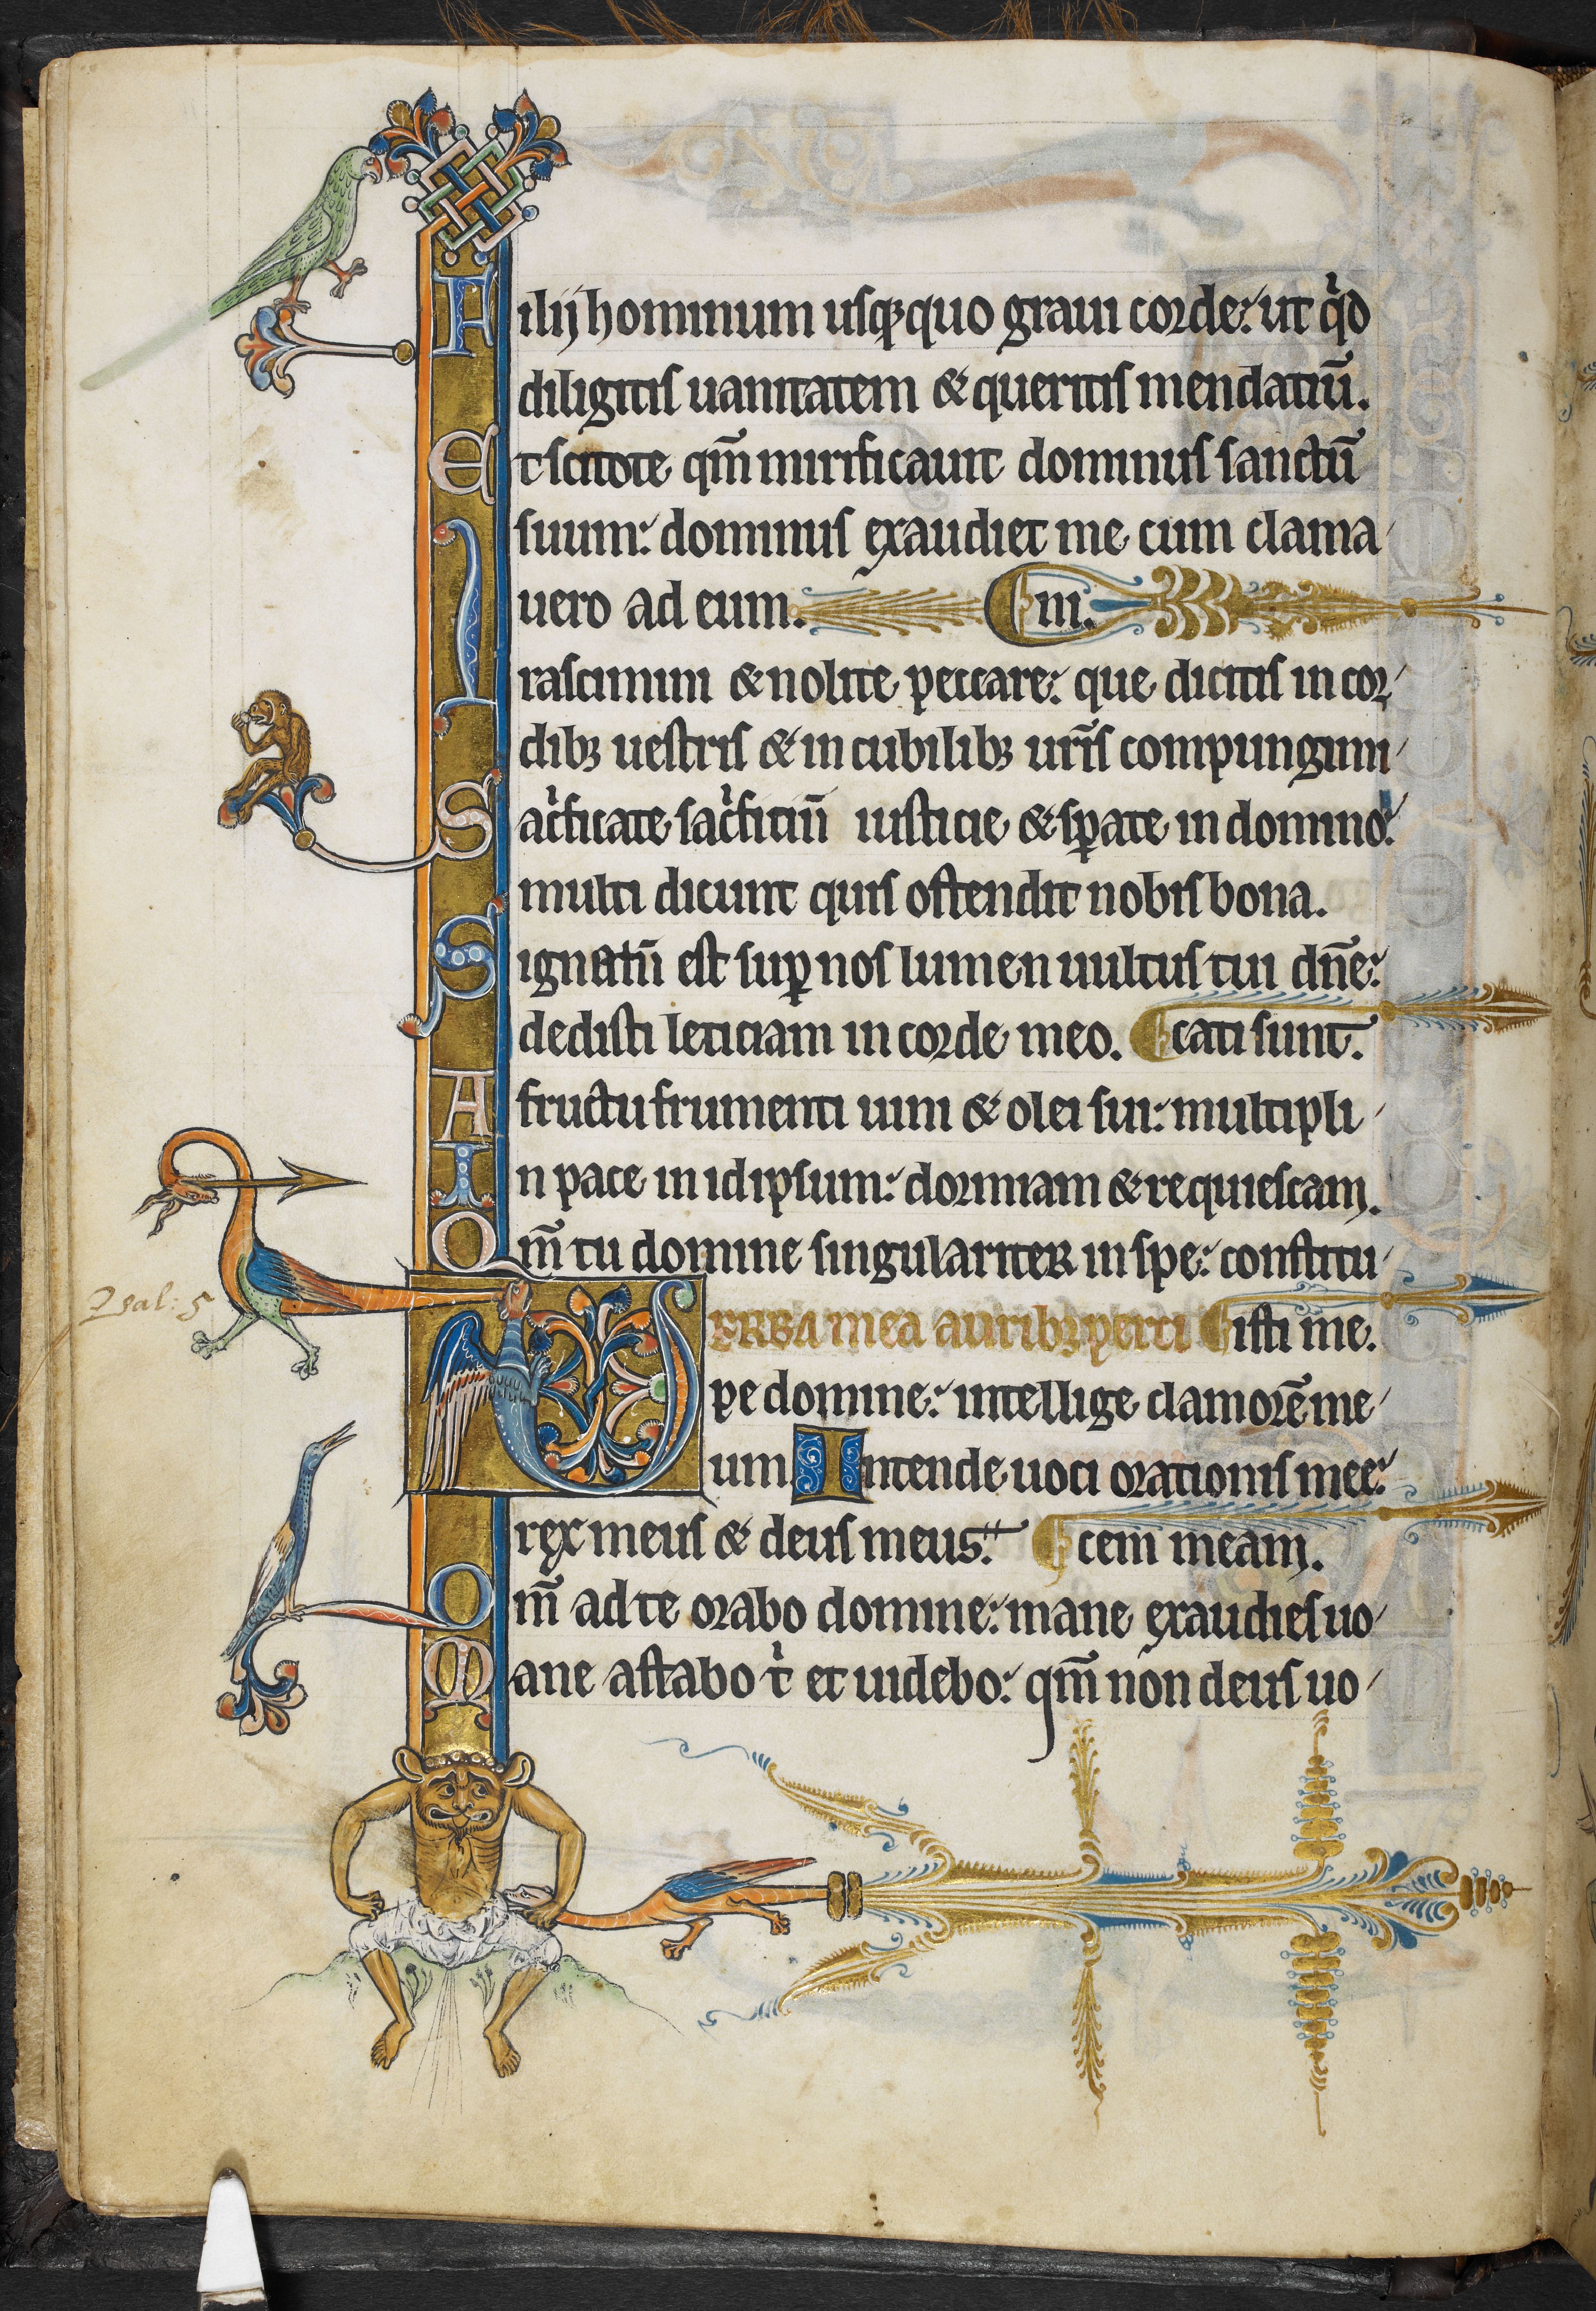 Filij hominum usqꝫquo graui corde: ut qͥd
diligitis uanitatem & queritis mendatiū.
Et scitote qm̄ mirificauit dominus sanctū
suum: dominus exaudiet me cum clama
uero ad eum. ni.
Irascimini & nolite peccare: que dicitis in cor
dibꝫ uestris & in cubilibꝫ ur̄is compungimi
Sacͥficate sacͥficiū iusticie & sꝑate in domino:
multi dicunt quis ostendit nobis bona.
Signatū est suꝑ nos lumen uultus tui dn̄e:
dedisti leticiam in corde meo. cati sunt.
A fructu frumenti uini & olei sui: multipli
In pace in idipsum: dormiam & requiescam.
Qm̄ tu domine singulariter in spe: constitu
Psal: 5
VERBA mea auribꝫ perci isti me.
pe domine: intellige clamorē me
um Intende uoci orationis mee:
rex meus & deus meus. cem meam.
Qm̄ ad te orabo domine: mane exaudies uo
Mane astabo tͥ et uidebo: qm̄ non deus uo